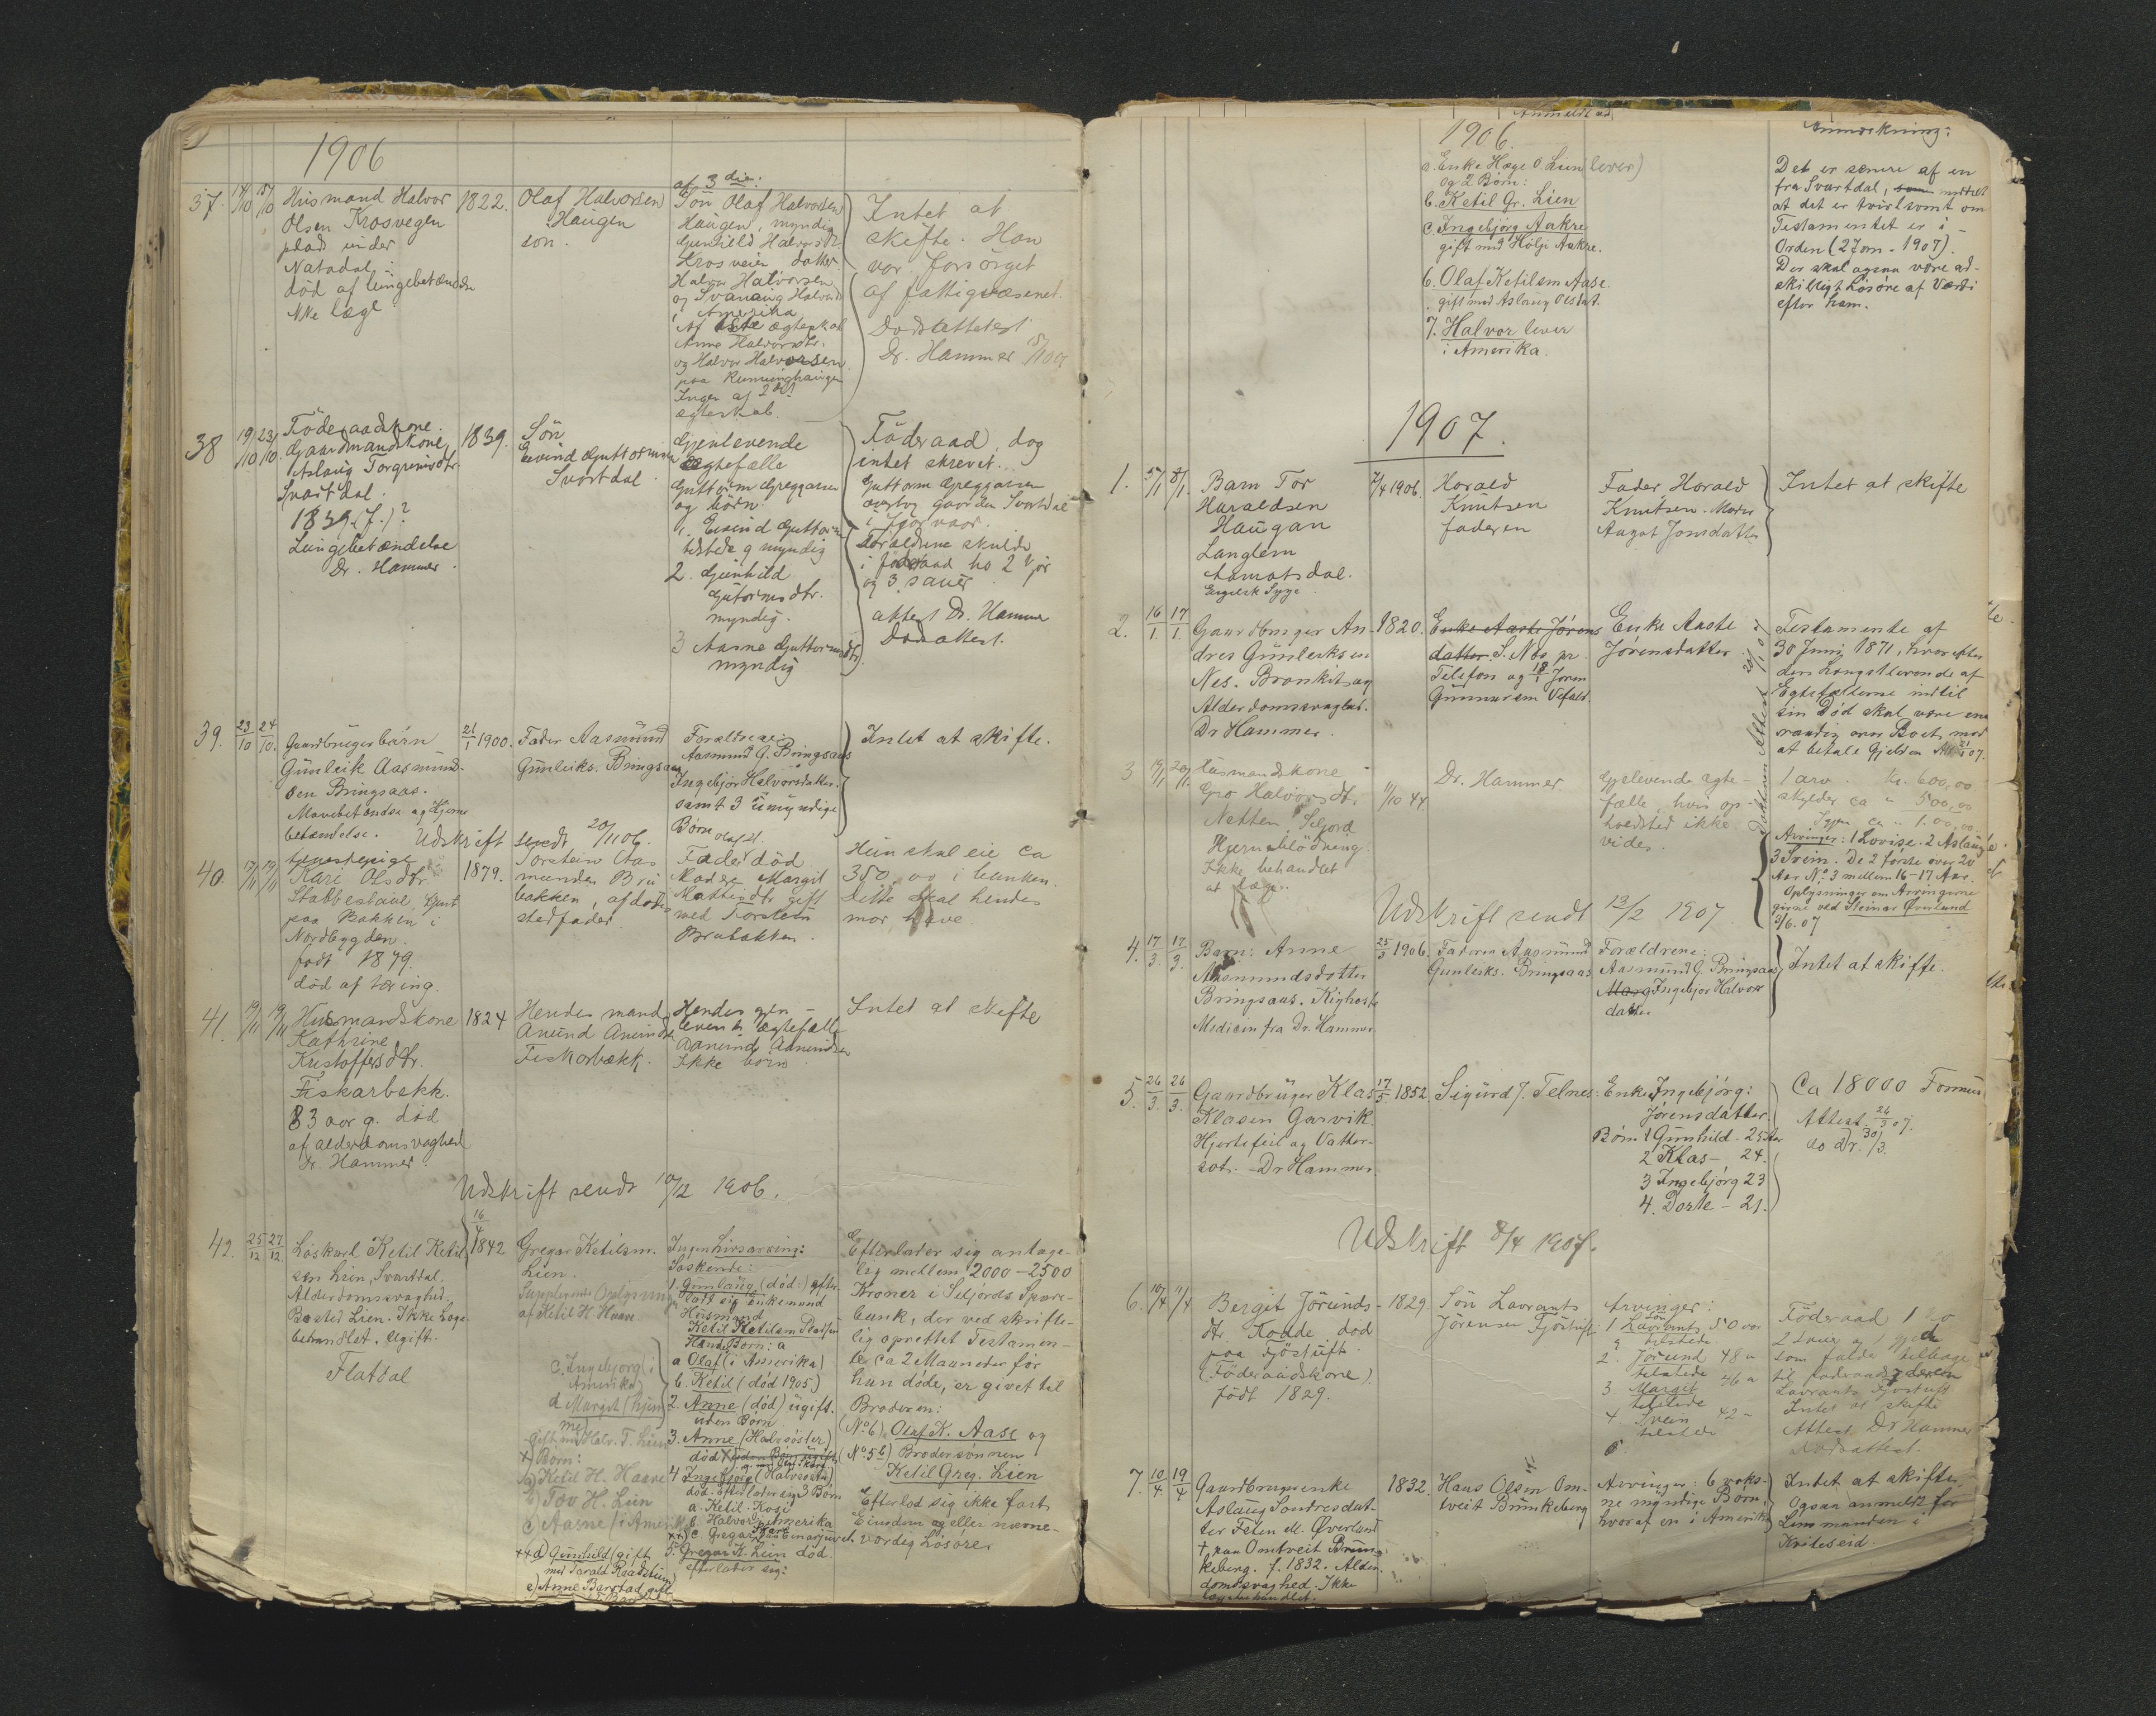 1906
37. 14/10 15/10 Husmand Halvor
Olsen Krosvegen
plads under
Natadal
död af lungebetændelse
Ikke læge
1822.
Olaf Halvorsen
Haugen
son.
af 3die:
Sön Olaf Halvorsen
Haugen, myndig
Gunhild Halvorsdtr.
Krosveien datter
Halvor Halvorsen
og Svanaug Halvorsd
i Amerika
Af 1ste ægteskab
Anne Halvorsdtr.
og Halvor Halvorsen
paa
Ingen af 2det
ægteskab
Intet at
skifte. Han
var forsörget
af fattigvæsenet.
Dödsattest
Dr. Hammer
38 19/10 23/10. Föderaadskone.
Gaardmandskone
Aslaug Torgrimsdtr.
Svartdal.
1839 (7.)?
Lungebetændelse
Dr. Hammer.
1839.
Sön
Eivind Guttormsen
Svartdal.
Gjenlevende
ægtefælle
Guttorm Greggarsen
og börn
1. Eivind Guttorm
tilstede g myndig
2. Gunhild
Gutormsdtr.
myndig.
3 Aasne Guttormsdtr.
myndig
Föderaad, dog
intet skrevet.
Guttorm Greggarsen
overtog gaarden Svartdal
i fjor vaar.
Forældrene skulde
i föderaad ha 2 kjör
og 3 sauer
attest Dr. Hammer
Dödsattest.
39. 23/10 24/10. Gaardbrugerbarn
Gunleik Aasmund-
sen Bringsaas.
Mavebetændelse og Hjerne
betændelse.
21/1 1900.
Fader Aasmund
Gunleiks. Bringsaas
Forældrene:
Aasmund G. Bringsaas
Ingebjör Halvorsdatter.
samt 3 umyndige
Börn
Intet at skifte.
Udskrift sendt 20/11 06.
40. 17/11 19/11 tjenestepige
Kari Olsdtr.
Stabbestaul, tjent
paa Bakken i
Nordbygden.
født 1879.
död af tæring.
1879.
Torstein Aas
munden Bru
bakken, afdödes
stedfader
Olaf H.
Fader död
Moder Margit
Mattisdtr. gift
med Torstein
Brubakken.
Hun skal eie ca
350,00 i banken.
Dette skal hendes
mor have
41. 19/11 19/11 Husmandskone
Kathrine
Kristoffersdtr.
Fiskarbekk.
83 aar g. död
af alderdomsvaghed
Dr. Hammer.
1824
Hendes mand
Anund Anunds
Fiskarbækk.
Hendes gjen-
levende ægtefælle
Aanund Aanundsen
Ikke börn
Intet at skifte
Udskrift sendt 10/12 1906.
42. 25/12 27/12 Löskarl Ketil Ketil
sen Lien, Svartdal.
Alderdomssvaghed.
Bosted Lien. Ikke læge-
behandlet. Ugift.
Flatdal
16/4 1842
Gregar Ketilsen.
Lien.
Supplerende Oplysning
af Ketil H. Haave
Ingen Livsarving:
Söskende:
1. Gunlaug (död:) efter
latt sig enkemand
Husmand
Ketil Ketilsen Pladsen
Hendes Born: a
a Olaf (i Amerika)
b. Ketil (död 1905)
c. Ingebjorg (i
Amerika)
d Margit (hjem
me)
gift med Halv. T. Lien
2. Anne (död) ugift.
uden Börn.
3. Anne (Halvsöster)
död
x) Börn:
a) Ketil H. Haave
b) Tov H. Lien
c) Aasne (i Amerik
4 Ingebjörg (Halvsöster)
död. efterlader sig 3 Börn
a. Ketil. Kosi
b. Halvor i Amerika
xx) c. Gregar
5. Gregar K. Lien död.
efterlater sig:
xx d) Gunhild (gift
med Tarald Raadstuen)
e) Anne Barstad gift
Efterlader sig antage-
lig mellem 2000-2500
Kroner i Seljords Spare-
bank, der ved skrift-
lig oprettet Testamen-
te ca 2 Maaneder för
han döde, er givet til
Broderen:
(No 6) Olaf K. Aase og
(No 5 b) Brodersönnen
Ketil Greg. Lien
Efterlod sig ikke fast
Eiendom og eller nævne-
værdig Lösöre.
Anmeldt ved
1906.
a Enke Hæge O. Lien (lever)
og 2 Börn:
b. Ketil Gr. Lien
c. Ingebjörg Aakre
gift med Hölje Aakre.
6. Olaf Ketilsen Aase.
gift med Aslaug Olsdat.
7. Halvor lever
i Amerika.
Anmerkning:
Det er senere af en
fra Svartdal, som meddelt
at det er tvivlsomt om
Testamentet er i
Orden (27 om. 1907).
Der skal ogsaa være ad-
skilligt Lösöre af Værdi
efter ham.
1907.
1. 5/1 8/1. Barn Tor
Haraldsen
Haugan
Langlem
Aamotsdal.
Engelsk Syge
7/4 1906.
Harald
Knutsen
faderen
Fader Harald
Knutsen. Moder
Aagot Jonsdatter
Intet at skifte
2. 16/1. 17/1. Gaardbruger An-
dres Gunleiksen
Nes. Bronkit og
Alderdomssvaghed.
Dr Hammer.
1820.
Enke Aaste Jörens
datter. S. Nes pr
Telefon og 18/1 Jören
Gunnarsen Vefald.
Enke Aaste
Jörensdatter
Testamente af
30 Juni 1871, hvorefter
den Længstlevende af
Egtefællerne indtil
sin Död skal være en-
raadig over Boet, mod
at betale Gjelden
3 19/1 20/1. Husmandskone
Gro Halvorsdt.
Netten, Seljord
Hjerneblödning.
Ikke behandlet
af læge.
11/10 44.
Dr. Hammer
Gjenlevende ægte-
fælle, hvis op-
holdsted ikke
vides.
1 arv. Kr. 600,00
skylder ca " 500,00
Arvinger: 1 Lovise. 2 Aslaug
3 Svein. De 2 förste over 20
Aar No 3 mellem 16-17 Aar.
Oplysninger om Arvingerne
givne ved Steinar Överland
3/6.07
Udskrift sendt 13/2 1907
4. 17/3. 17/3. Barn: Anne
Aasmundsdatter
Bringsaas. Kighoste
Medicin fra Dr. Hammer
25/3 1906.
Faderen Aasmund
Gunleiks. Bringsaas
Forældrene:
Aasmund G. Bringsaas
Marg Ingebjor Halvors
datter
Intet at skifte.
5. 26/3. 26/3. Gaardbruger Klas
Klasen Garvik.
Hjertefeil og Vatter-
sot. - Dr Hammer.
17/5 1852
Sigurd J. Telnes:
Enke Ingebjörg:
Jörensdatter.
Börn 1 Gunhild - 25 Aar
2 Klas - 24.
3 Ingebjörg 23
4. Dorte - 21.
Ca 18000 Formue
Attest 26/3 07.
do dr. 30/3.
Udskrift 8/4 1907.
6. 10/4 11/4 Bergit Jörunds-
dtr. Kodde död
paa Fjöstuft.
(Föderaadskone).
födt 1829.
1829
Sön Lavrants
Jörensen Fjöstuft:
Arvinger:
Sön
1 Lavrants 50 aar
g tilstede
2. Jörund 48 "
tilstede
3. Margit 46 "
tilstede
4 Svein 42 "
tilstede
Föderaad 1
2 sauer og 1 gjed
som falder tilbage
til föderaadsyderen
Lavrants Fjöstuft
Intet at skifte
Attest Dr Hammer
Dödsattest.
7. 10/4 19/4 Gaardbrugerenke
Aslaug Sondresdat-
ter Felen Överland
† paa Omtveit Brun-
keberg. f. 1832. Alder-
domssvaghed. Ikke
lægebehandlet.
1832.
Hans Olsen Om-
tveit Brunkeberg
Arvinger: 6 voks-
ne myndige Börn,
hvoraf en i Amerika
Intet at skifte
Ogsaa anmeldt for
Lensmanden i
Kviteseid.